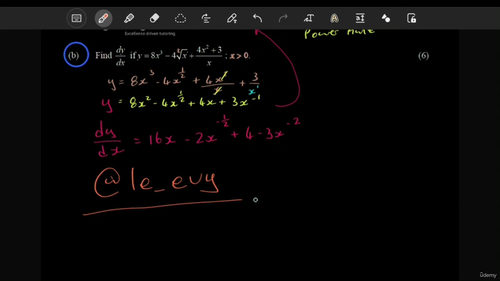 Excellence driven tutoring
Power Rule
(b) Find dy/dx if y = 8x³ − 4√x + (4x² + 3)/x ; x > 0. (6)
y = 8x³ − 4x^(1/2) + 4x²/x + 3/x¹
y = 8x² − 4x^(1/2) + 4x + 3x⁻¹
dy/dx = 16x − 2x^(−1/2) + 4 − 3x⁻²
@le_evy
ûdemy